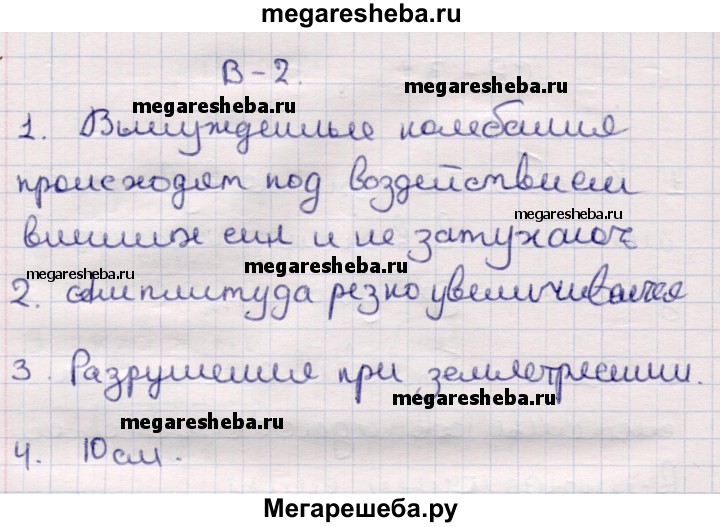 megaresheba.ru
В-2.
megaresheba.ru
megaresheba.ru
1. Вынужденные колебания
происходят под воздействием
megaresheba.ru
внешних сил и не затухают
megaresheba.ru
megaresheba.ru
2. амплитуда резко увеличивается
3. Разрушения при землетрясении.
megaresheba.ru
megaresheba.ru
4. 10 см.
Мегарешеба.ру